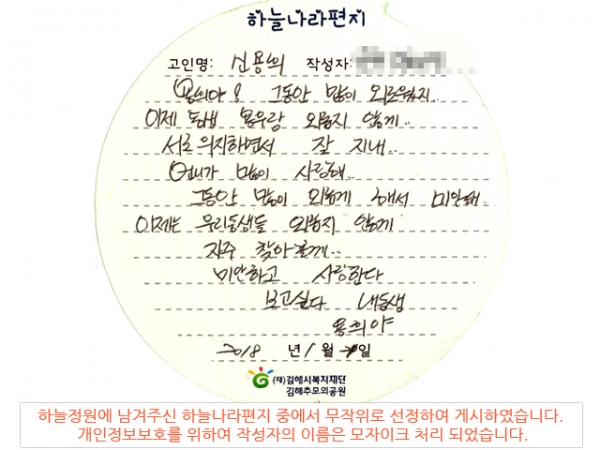 하늘나라편지
고인명: 신용희 작성자:
용희야! 그동안 많이 외로웠지..
이제 동생 용우랑 외롭지 않게..
서로 의지하면서 잘 지내..
언니가 많이 사랑해..
그동안 많이 외롭게 해서 미안해
이제는 우리동생들 외롭지 않게
자주 찾아올게..
미안하고 사랑한다
보고싶다 내동생
용희야
2018 년 1 월 일
(재)김해시복지재단
김해추모의공원
하늘정원에 남겨주신 하늘나라편지 중에서 무작위로 선정하여 게시하였습니다.
개인정보보호를 위하여 작성자의 이름은 모자이크 처리 되었습니다.